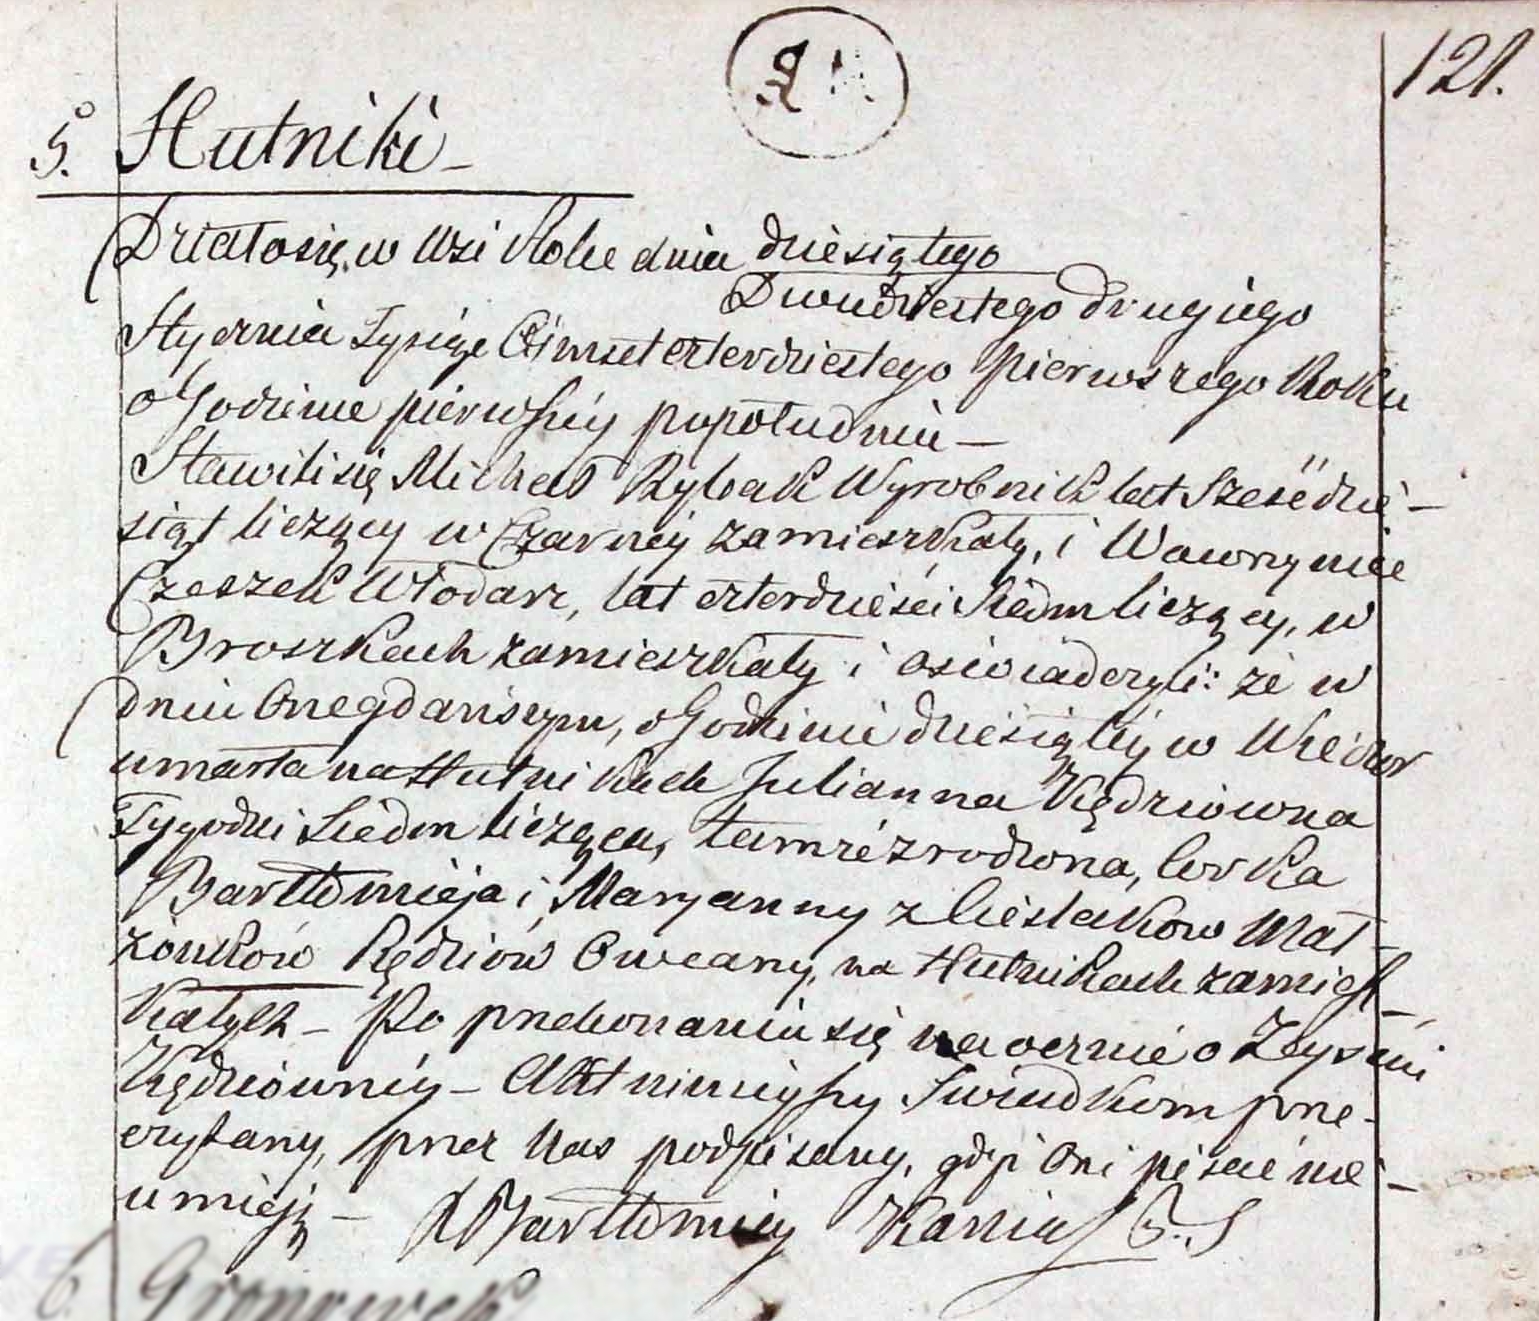 121.
5. Hutniki –
Działosię w Wsi dnia dziesiątego
Dwudziestego drugiego
Stycznia Tysiąc Ośmset czterdziestego pierwszego Roku
o Godzinie pierwszy popołudniu –
Stawili się Michał Rybak Wyrobnik lat Sześćdzie–
siąt liczący w Czarnéy zamieszkały, i Wawrzyniec
Czeszek Włodarz, lat czterdzieści Siedm liczący, w
Broszkach zamieszkały i oświadczyli: że w
dniu Onegdańszym, o Godzinie dziesiątéy w Wieczor
umarła na Hutnikach Julianna Kędziówna
Tygodni Siedm licząca, tamże zrodzona, Corka
Bartłomieja i Maryanny z Cieślaków Mał–
żonków Kędziów Owczarzy, na Hutnikach zamiesz–
kałych – Po przekonaniu się naocznie o Zeyściu
Kędziównéy – Akt ninieyszy Swiadkom prze–
czytany, przez Nas podpisany, gdyż Oni pisać nie–
umieją – X Bartłomiéy Kania
6. Gronówek